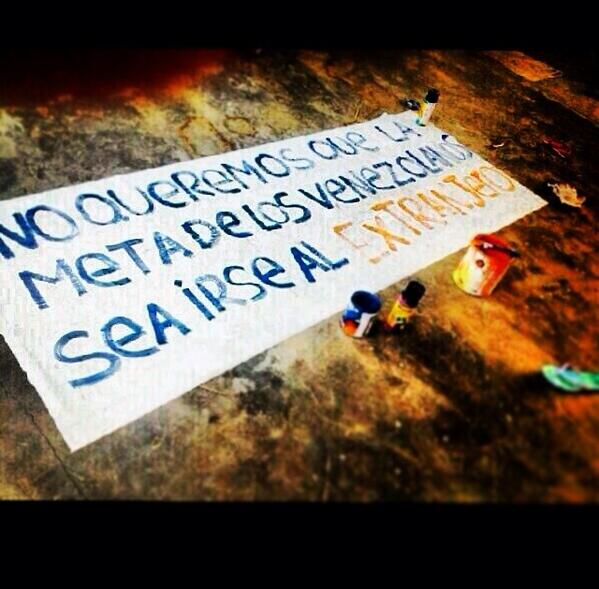 NO QUEREMOS QUE LA
META DE LOS VENEZOLANOS
SEA IRSE AL EXTRANJERO